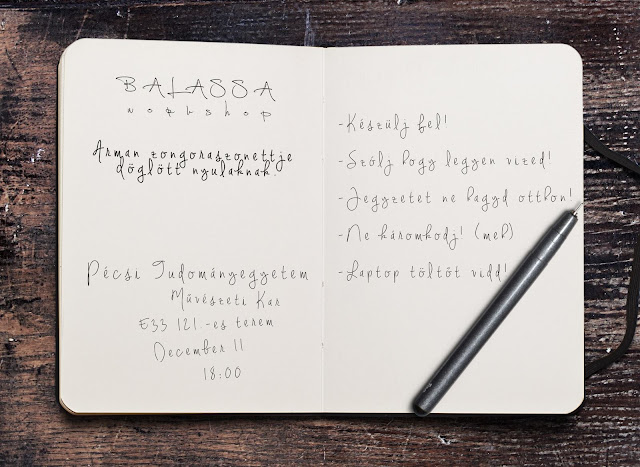 BALASSA
workshop
Arman zongoraszonettje
döglött nyulaknak
Pécsi Tudományegyetem
Művészeti Kar
E33 121.-es terem
December 11
18:00
-Készülj fel!
-Szólj hogy legyen vized!
-Jegyzetet ne hagyd otthon!
-Ne káromkodj! (meh)
-Laptop töltőt vidd!